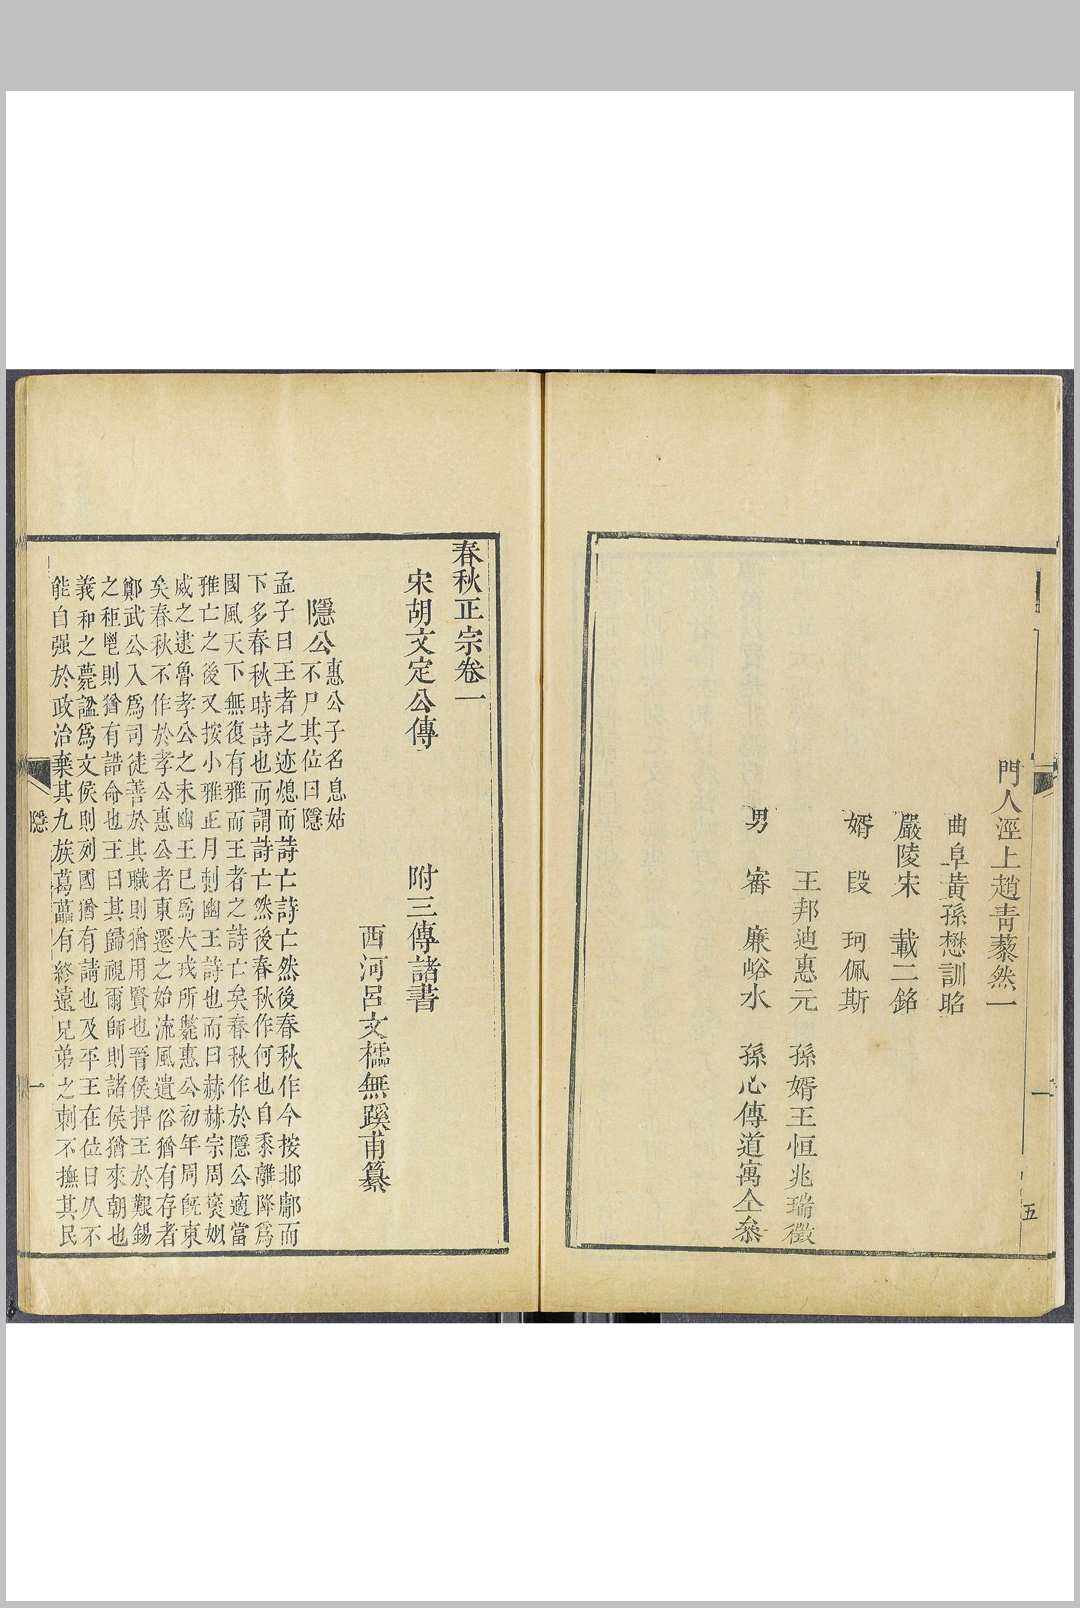 門人涇上趙青藜然一
曲阜黃孫懋訓昭
嚴陵宋 載二銘
婿 段 珂佩斯
王邦迪惠元 孫婿王恒兆瑞徵
男 審 廉峪水 孫心傳道寓仝叅
一
五
春秋正宗卷一
宋胡文定公傳 附三傳諸書
西河呂文櫺無蹊甫纂
隱公惠公子名息姑
不尸其位曰隱
孟子曰王者之迹熄而詩亡詩亡然後春秋作今按邶鄘而
下多春秋時詩也而謂詩亡然後春秋作何也自黍離降爲
國風天下無復有雅而王者之詩亡矣春秋作於隱公適當
雅亡之後又按小雅正月刺幽王詩也而曰赫赫宗周褒姒
烕之逮魯孝公之末幽王巳爲犬戎所斃惠公初年周旣東
矣春秋不作於孝公惠公者東遷之始流風遺俗猶有存者
鄭武公入爲司徒善於其職則猶用賢也晉侯捍王於艱錫
之秬鬯則猶有誥命也王曰其歸視爾師則諸侯猶來朝也
義和之薨諡爲文侯則列國猶有請也及平王在位日久不
能自强於政治棄其九族葛藟有終遠兄弟之刺不撫其民
隱
一